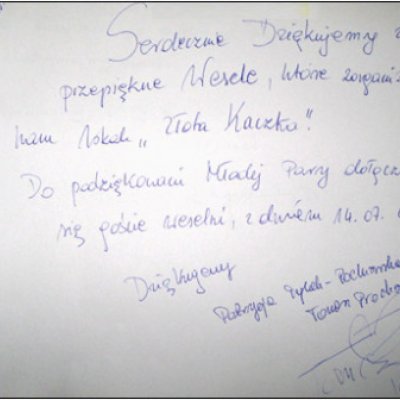 Serdecznie Dziękujemy z
przepiękne Wesele, które zorgani
nam lokal „Złota Kaczka".
Do podziękowań Młodej Pary dołącz
się goście weselni, z dniem 14.07.
Dziękujemy
Patrycja
Tomasz